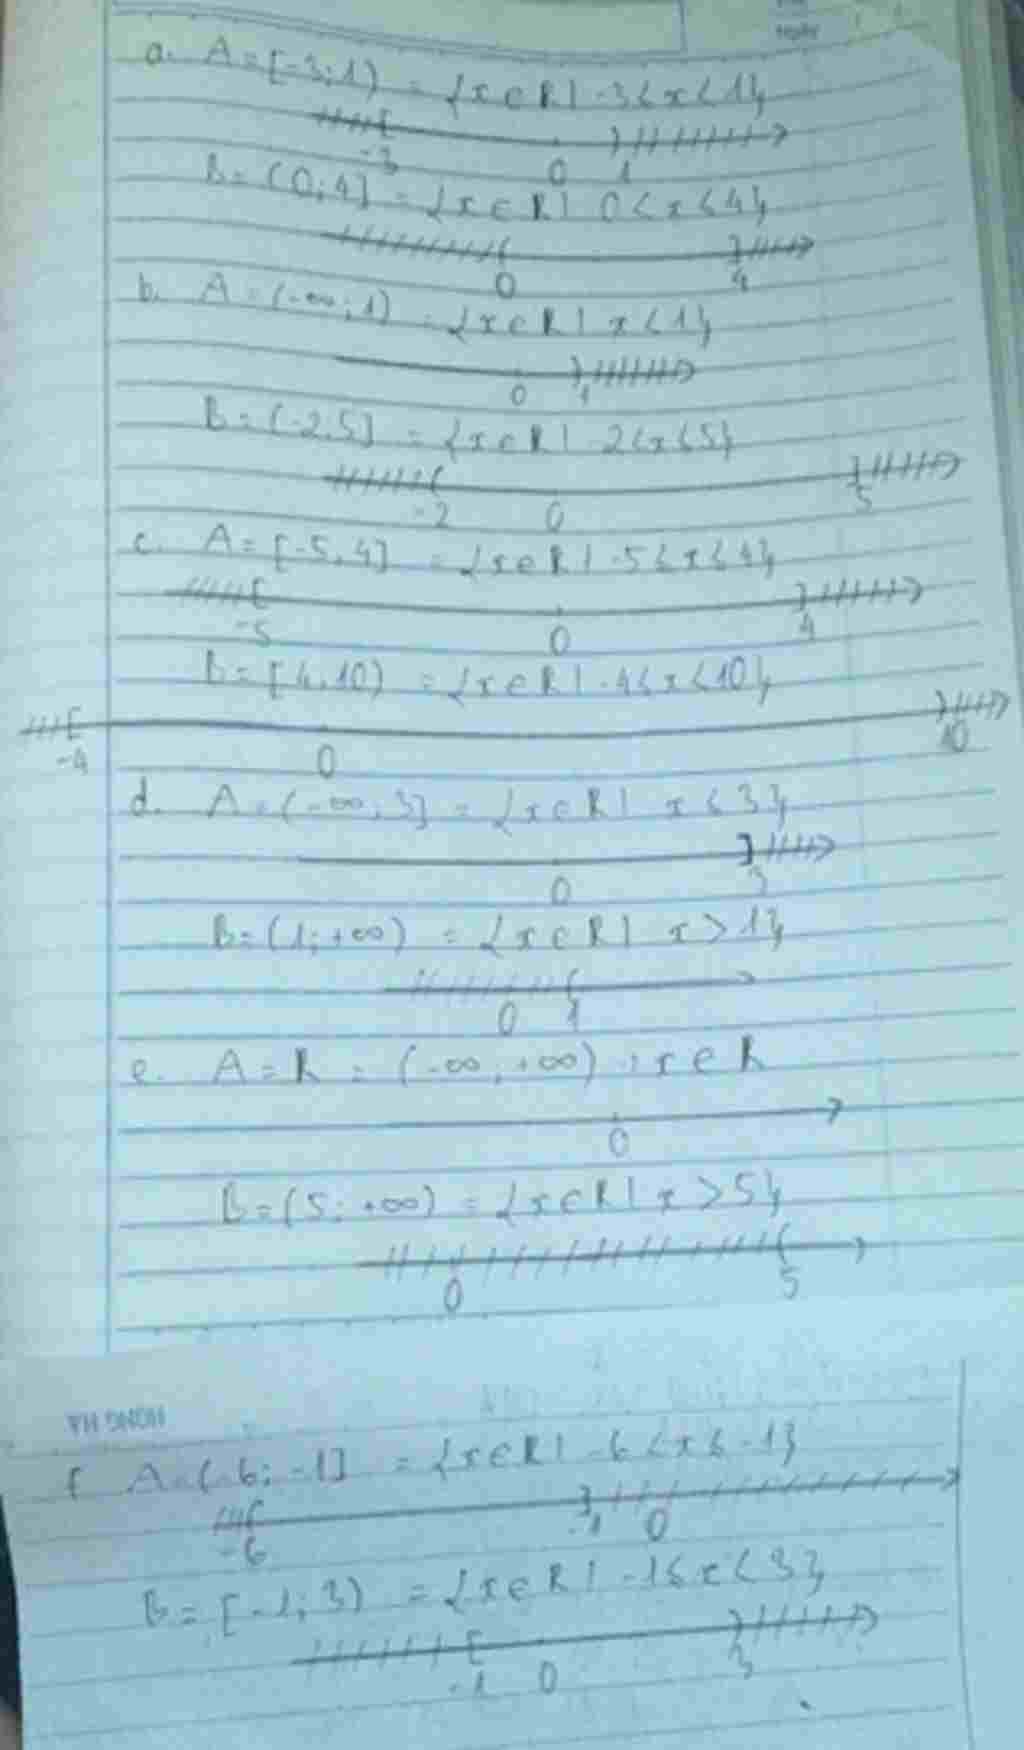 Ngày
a. A = [-3; 1) = {x ∈ R | -3 ≤ x < 1}
-3 0 1
B = (0; 4] = {x ∈ R | 0 < x ≤ 4}
0 4
b. A = (-∞; 1) = {x ∈ R | x < 1}
0 1
B = (-2, 5] = {x ∈ R | -2 < x ≤ 5}
-2 0 5
c. A = [-5, 4] = {x ∈ R | -5 ≤ x ≤ 4}
-5 0 4
B = [4, 10) = {x ∈ R | -4 ≤ x < 10}
-4 0 10
d. A = (-∞, 3] = {x ∈ R | x ≤ 3}
0 3
B = (1; +∞) = {x ∈ R | x > 1}
0 1
e. A = R = (-∞, +∞) , x ∈ R
0
B = (5; +∞) = {x ∈ R | x > 5}
0 5
HONG HA
f A = (-6; -1] = {x ∈ R | -6 < x ≤ -1}
-6 -1 0
B = [-1; 3) = {x ∈ R | -1 ≤ x < 3}
-1 0 3